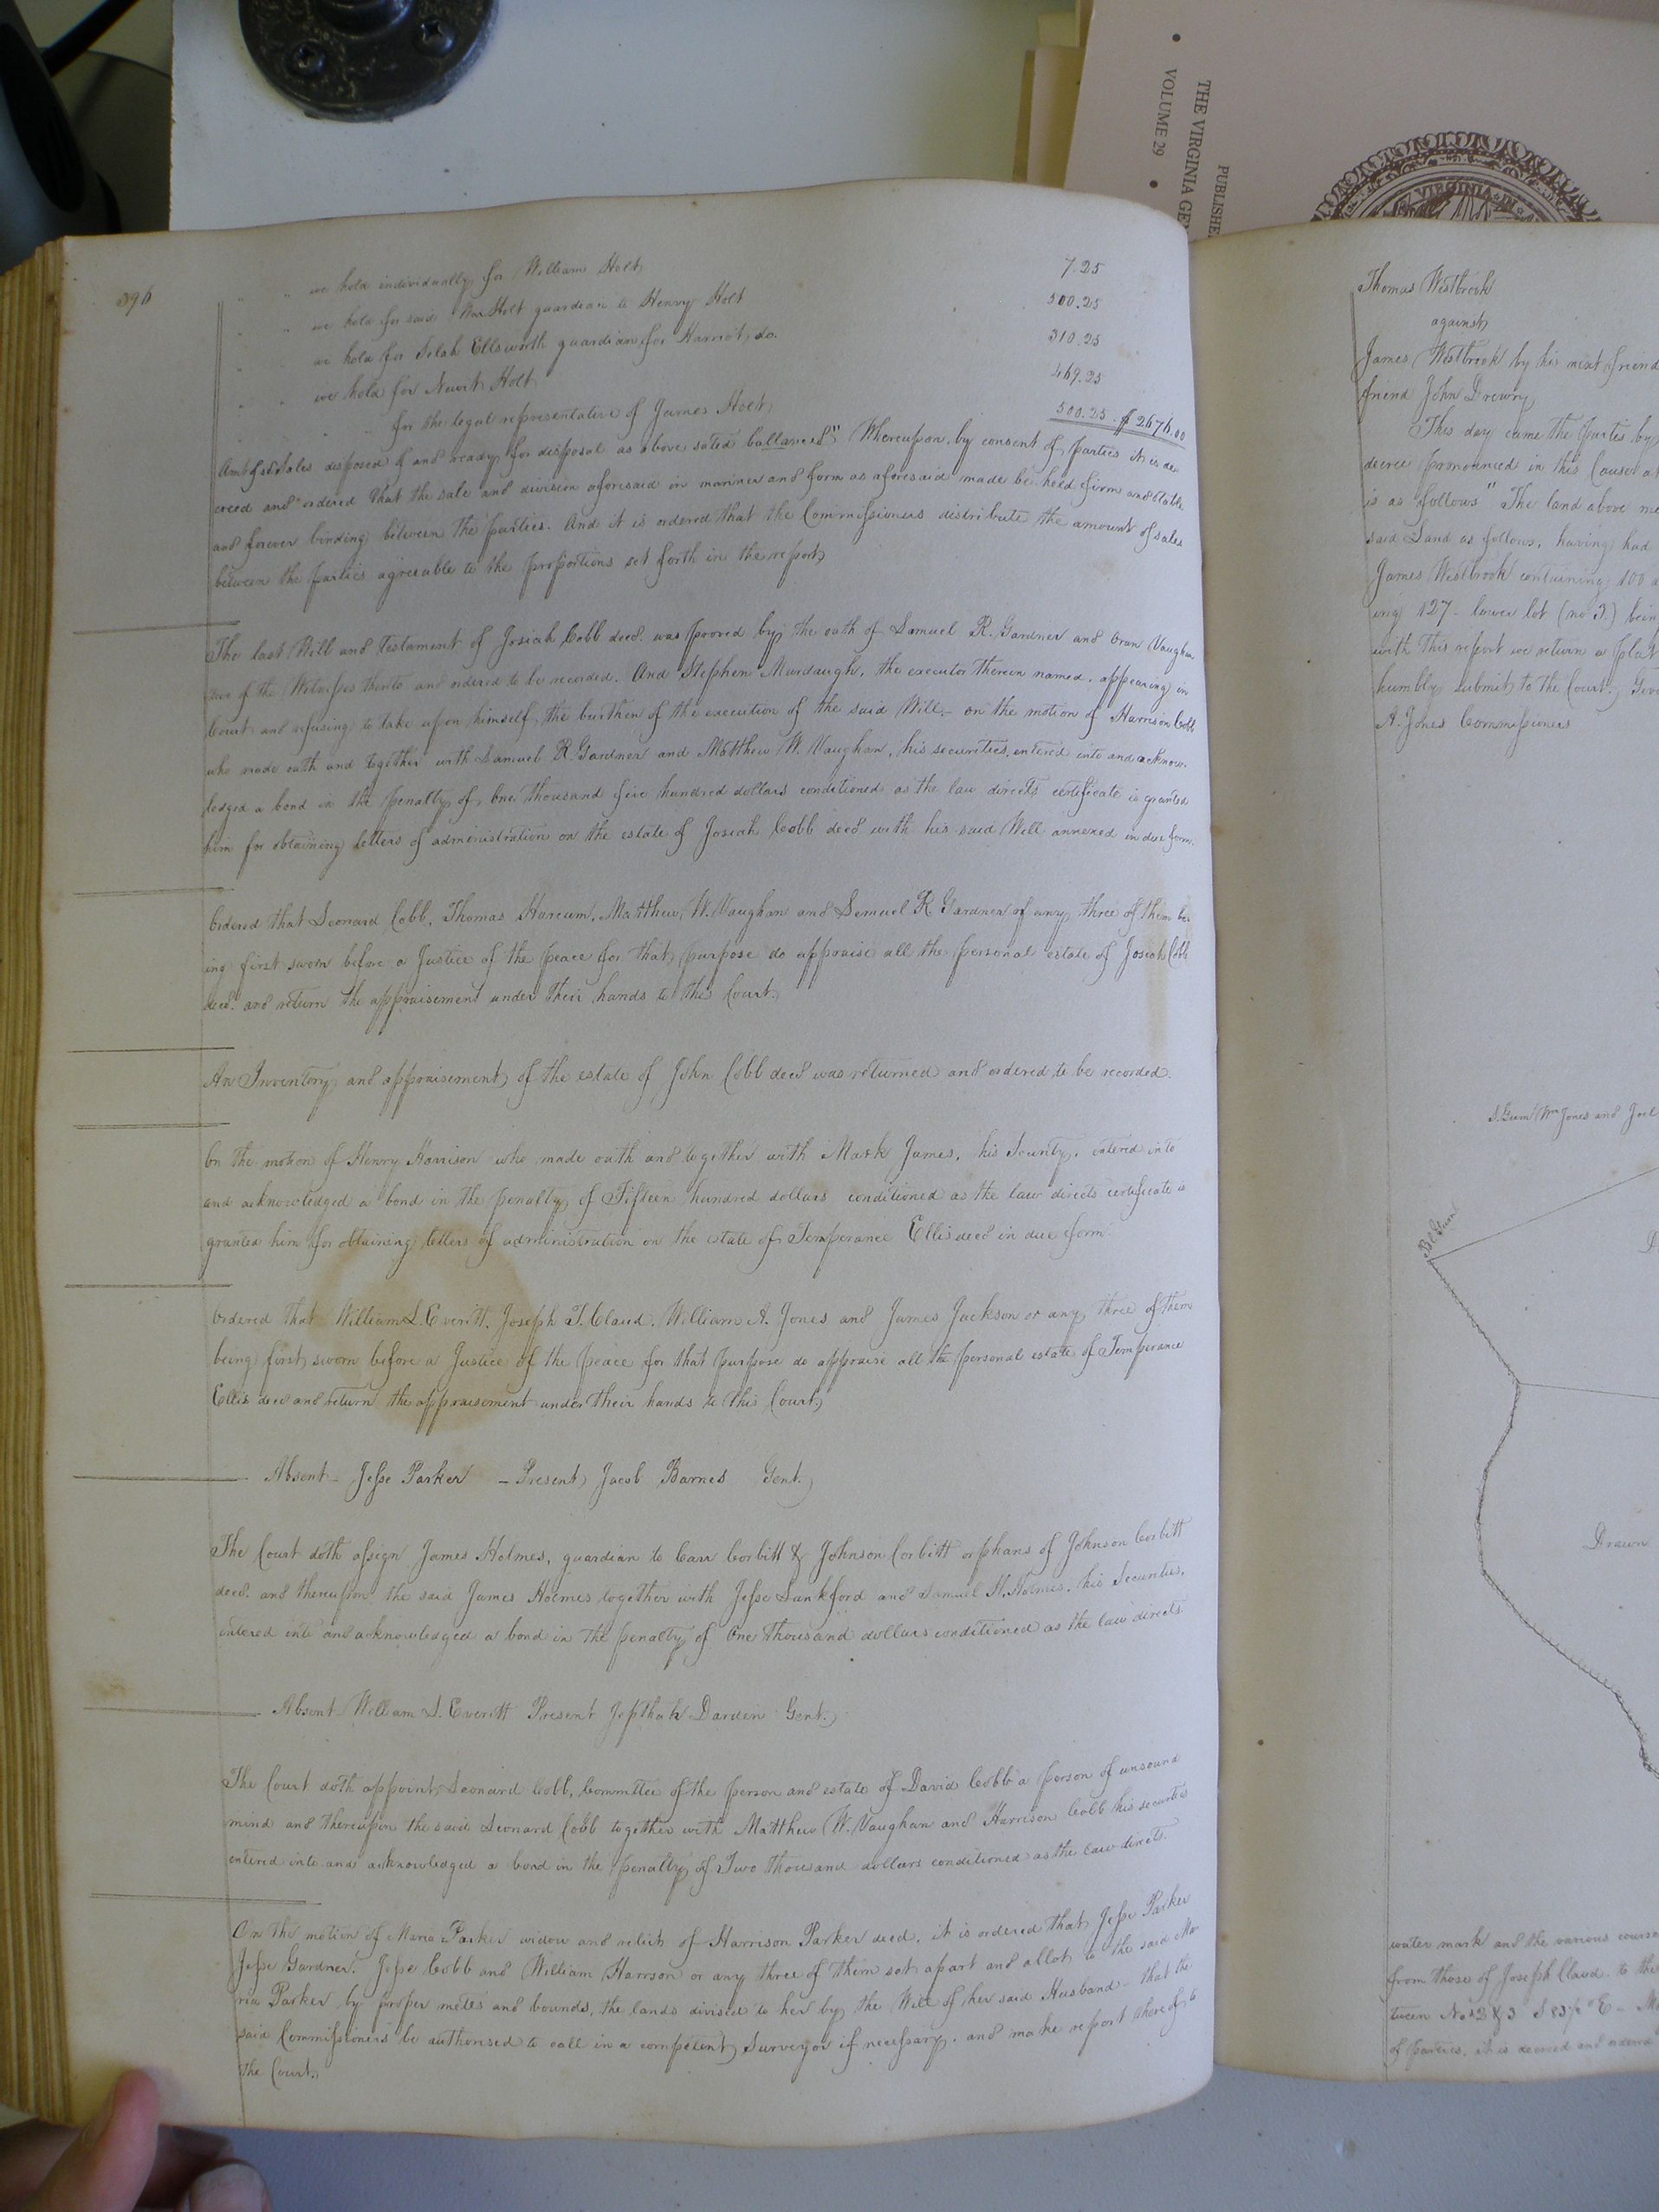 THE VIRGINIA GE
VOLUME 29
PUBLISHE
VIRGINIA IN
396
" " we hold individually for William Holt 7.25
" " we hold for said Wm Holt guardian to Henry Holt 500.25
" " we hold for Selah Ellsworth guardian for Harriot do. 310.25
" " we hold for Newit Holt 469.25
" " " for the legal representative of James Holt 500.25 $2676.00
Amt of sd Sales disposed of and ready for disposal as above stated ballanced" Whereupon by consent of parties it is de-
creed and ordered that the sale and division aforesaid in manner and form as aforesaid made be held firm and stable
and forever binding between the parties. And it is ordered that the Commissioners distribute the amount of sales
between the parties agreeable to the proportions set forth in the report
The last Will and testament of Josiah Cobb decd. was proved by the oath of Samuel R. Gardner and Oran Vaughan
two of the Witnesses thereto and ordered to be recorded. And Stephen Murdaugh, the executor therein named, appearing in
Court and refusing to take upon himself the burthen of the execution of the said Will, on the motion of Harrison Cobb
who made oath and together with Samuel R. Gardner and Matthew W. Vaughan, his securities, entered into and acknow-
ledged a bond in the penalty of One thousand five hundred dollars conditioned as the law directs certificate is granted
him for obtaining letters of administration on the estate of Josiah Cobb decd with his said Will annexed in due form.
Ordered that Leonard Cobb, Thomas Harcum, Matthew W. Vaughan and Samuel R. Gardner or any three of them be-
ing first sworn before a Justice of the peace for that purpose do appraise all the personal estate of Josiah Cobb
decd. and return the appraisement under their hands to the Court.
An Inventory and appraisement of the estate of John Cobb decd was returned and ordered to be recorded.
On the motion of Henry Harrison who made oath and together with Mark James, his Security, entered into
and acknowledged a bond in the penalty of Fifteen hundred dollars conditioned as the law directs certificate is
granted him for obtaining letters of administration on the estate of Temperance Ellis decd in due form
Ordered that William L. Everitt, Joseph T. Claud, William A. Jones and James Jackson or any three of them
being first sworn before a Justice of the peace for that purpose do appraise all the personal estate of Temperance
Ellis decd and return the appraisement under their hands to this Court.
Absent - Jesse Parker - Present Jacob Barnes Gent.
The Court doth assign James Holmes, guardian to Carr Corbitt & Johnson Corbitt orphans of Johnson Corbitt
decd. and thereupon the said James Holmes together with Jesse Lankford and Samuel H. Holmes, his Securities,
entered into and acknowledged a bond in the penalty of One thousand dollars conditioned as the law directs
Absent William L. Everitt Present Jepthah Darden Gent.
The Court doth appoint Leonard Cobb, Committee of the person and estate of David Cobb a person of unsound
mind and thereupon the said Leonard Cobb together with Matthew W. Vaughan and Harrison Cobb his securities
entered into and acknowledged a bond in the penalty of Two thousand dollars conditioned as the law directs.
On the motion of Maria Parker widow and relict of Harrison Parker decd, it is ordered that Jesse Parker
Jesse Gardner, Jesse Cobb and William Harrson or any three of them set apart and allot to the said Ma-
ria Parker by proper metes and bounds, the lands divised to her by the Will of her said Husband - that the
said Commissioners be authorised to call in a competent Surveyor if necessary, and make report thereof to
the Court.
Thomas Westbrook
against
James Westbrook by his next friend
friend John Drewry
This day came the parties by
decree pronounced in this Cause at
is as follows "The land above me
said Land as follows, having had
James Westbrook containing 100 a
ing 127 - lower lot (no 3.) bein
with this report we return a plat
humbly submit to the Court. Give
A. Jones Commissioners
S. Gum Wm Jones and Joel
Drawn
water mark and the various course
from those of Joseph Claud to the
tween Nos 2 & 3
of parties, it is decreed and ordered